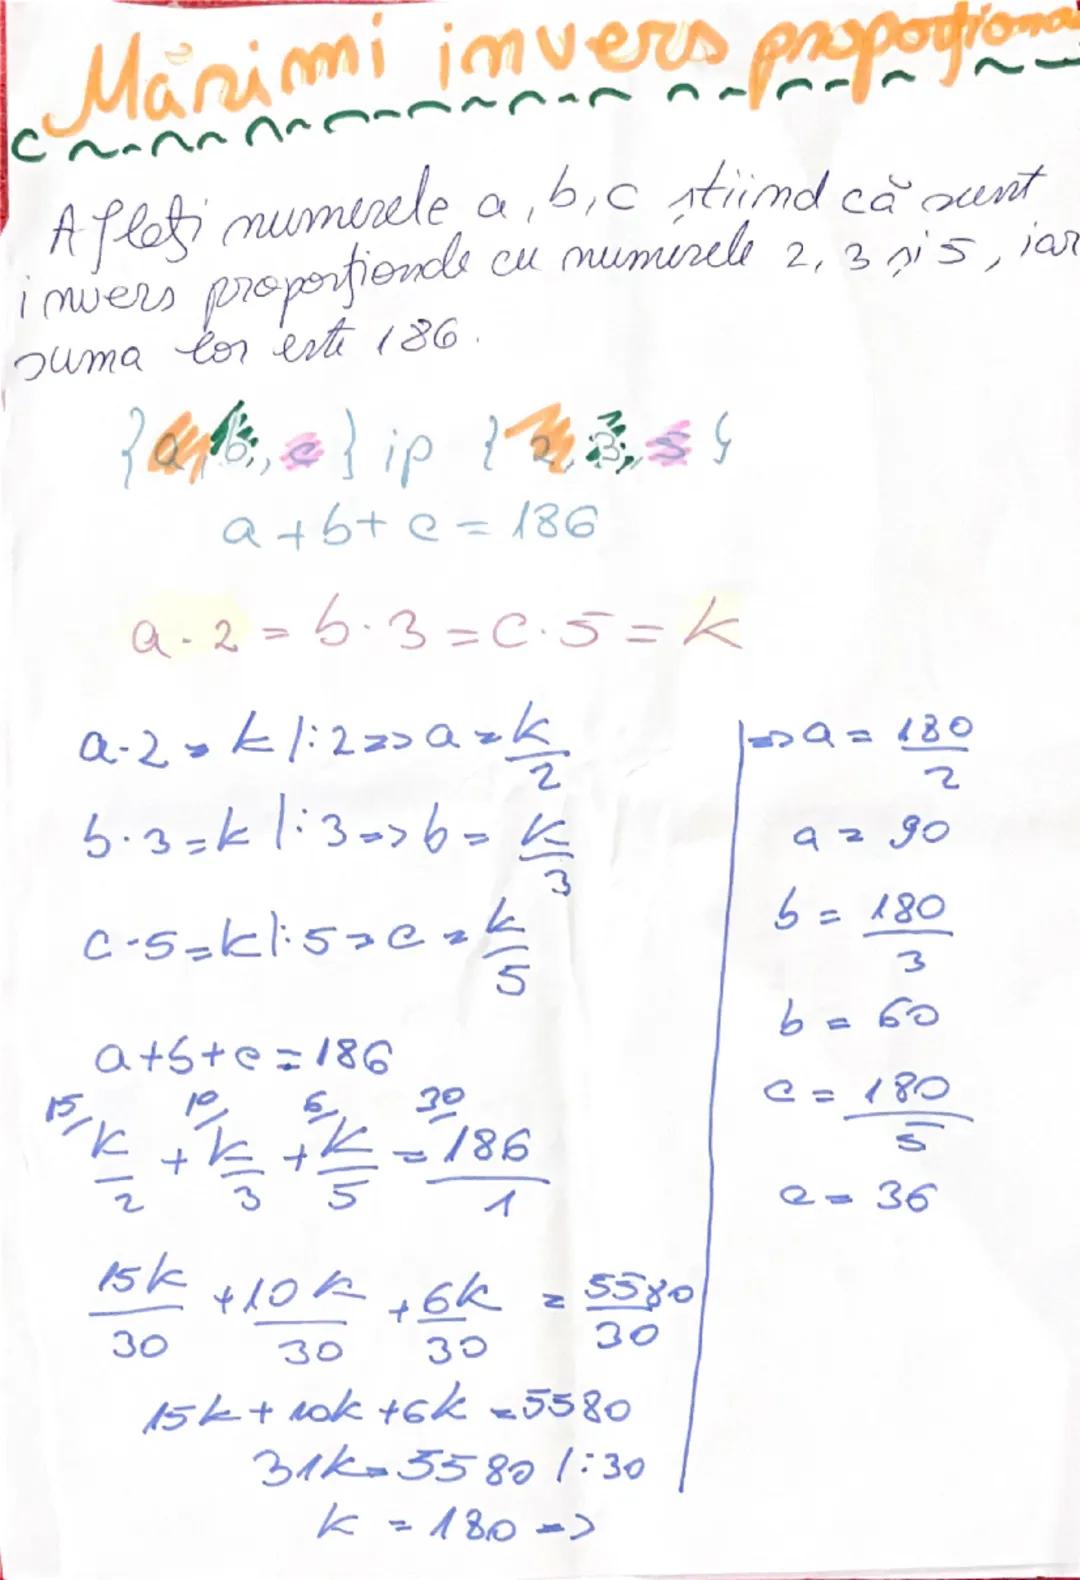 Mărimi invers proporționa
Aflați numerele a, b, c știind că sunt
invers proporționale cu numerele 2, 3 și 5, iar
suma lor este 186.
{a, b, c} ip {2, 3, 5}
a + b + c = 186
a · 2 = b · 3 = c · 5 = k
a · 2 = k |: 2 => a = k/2
b · 3 = k |: 3 => b = k/3
c · 5 = k |: 5 => c = k/5
a + b + c = 186
15/ k/2 + 10/ k/3 + 6/ k/5 = 30/ 186/1
15k/30 + 10k/30 + 6k/30 = 5580/30
15k + 10k + 6k = 5580
31k = 5580 |: 30
k = 180 =>
=> a = 180/2
a = 90
b = 180/3
b = 60
c = 180/5
c = 36